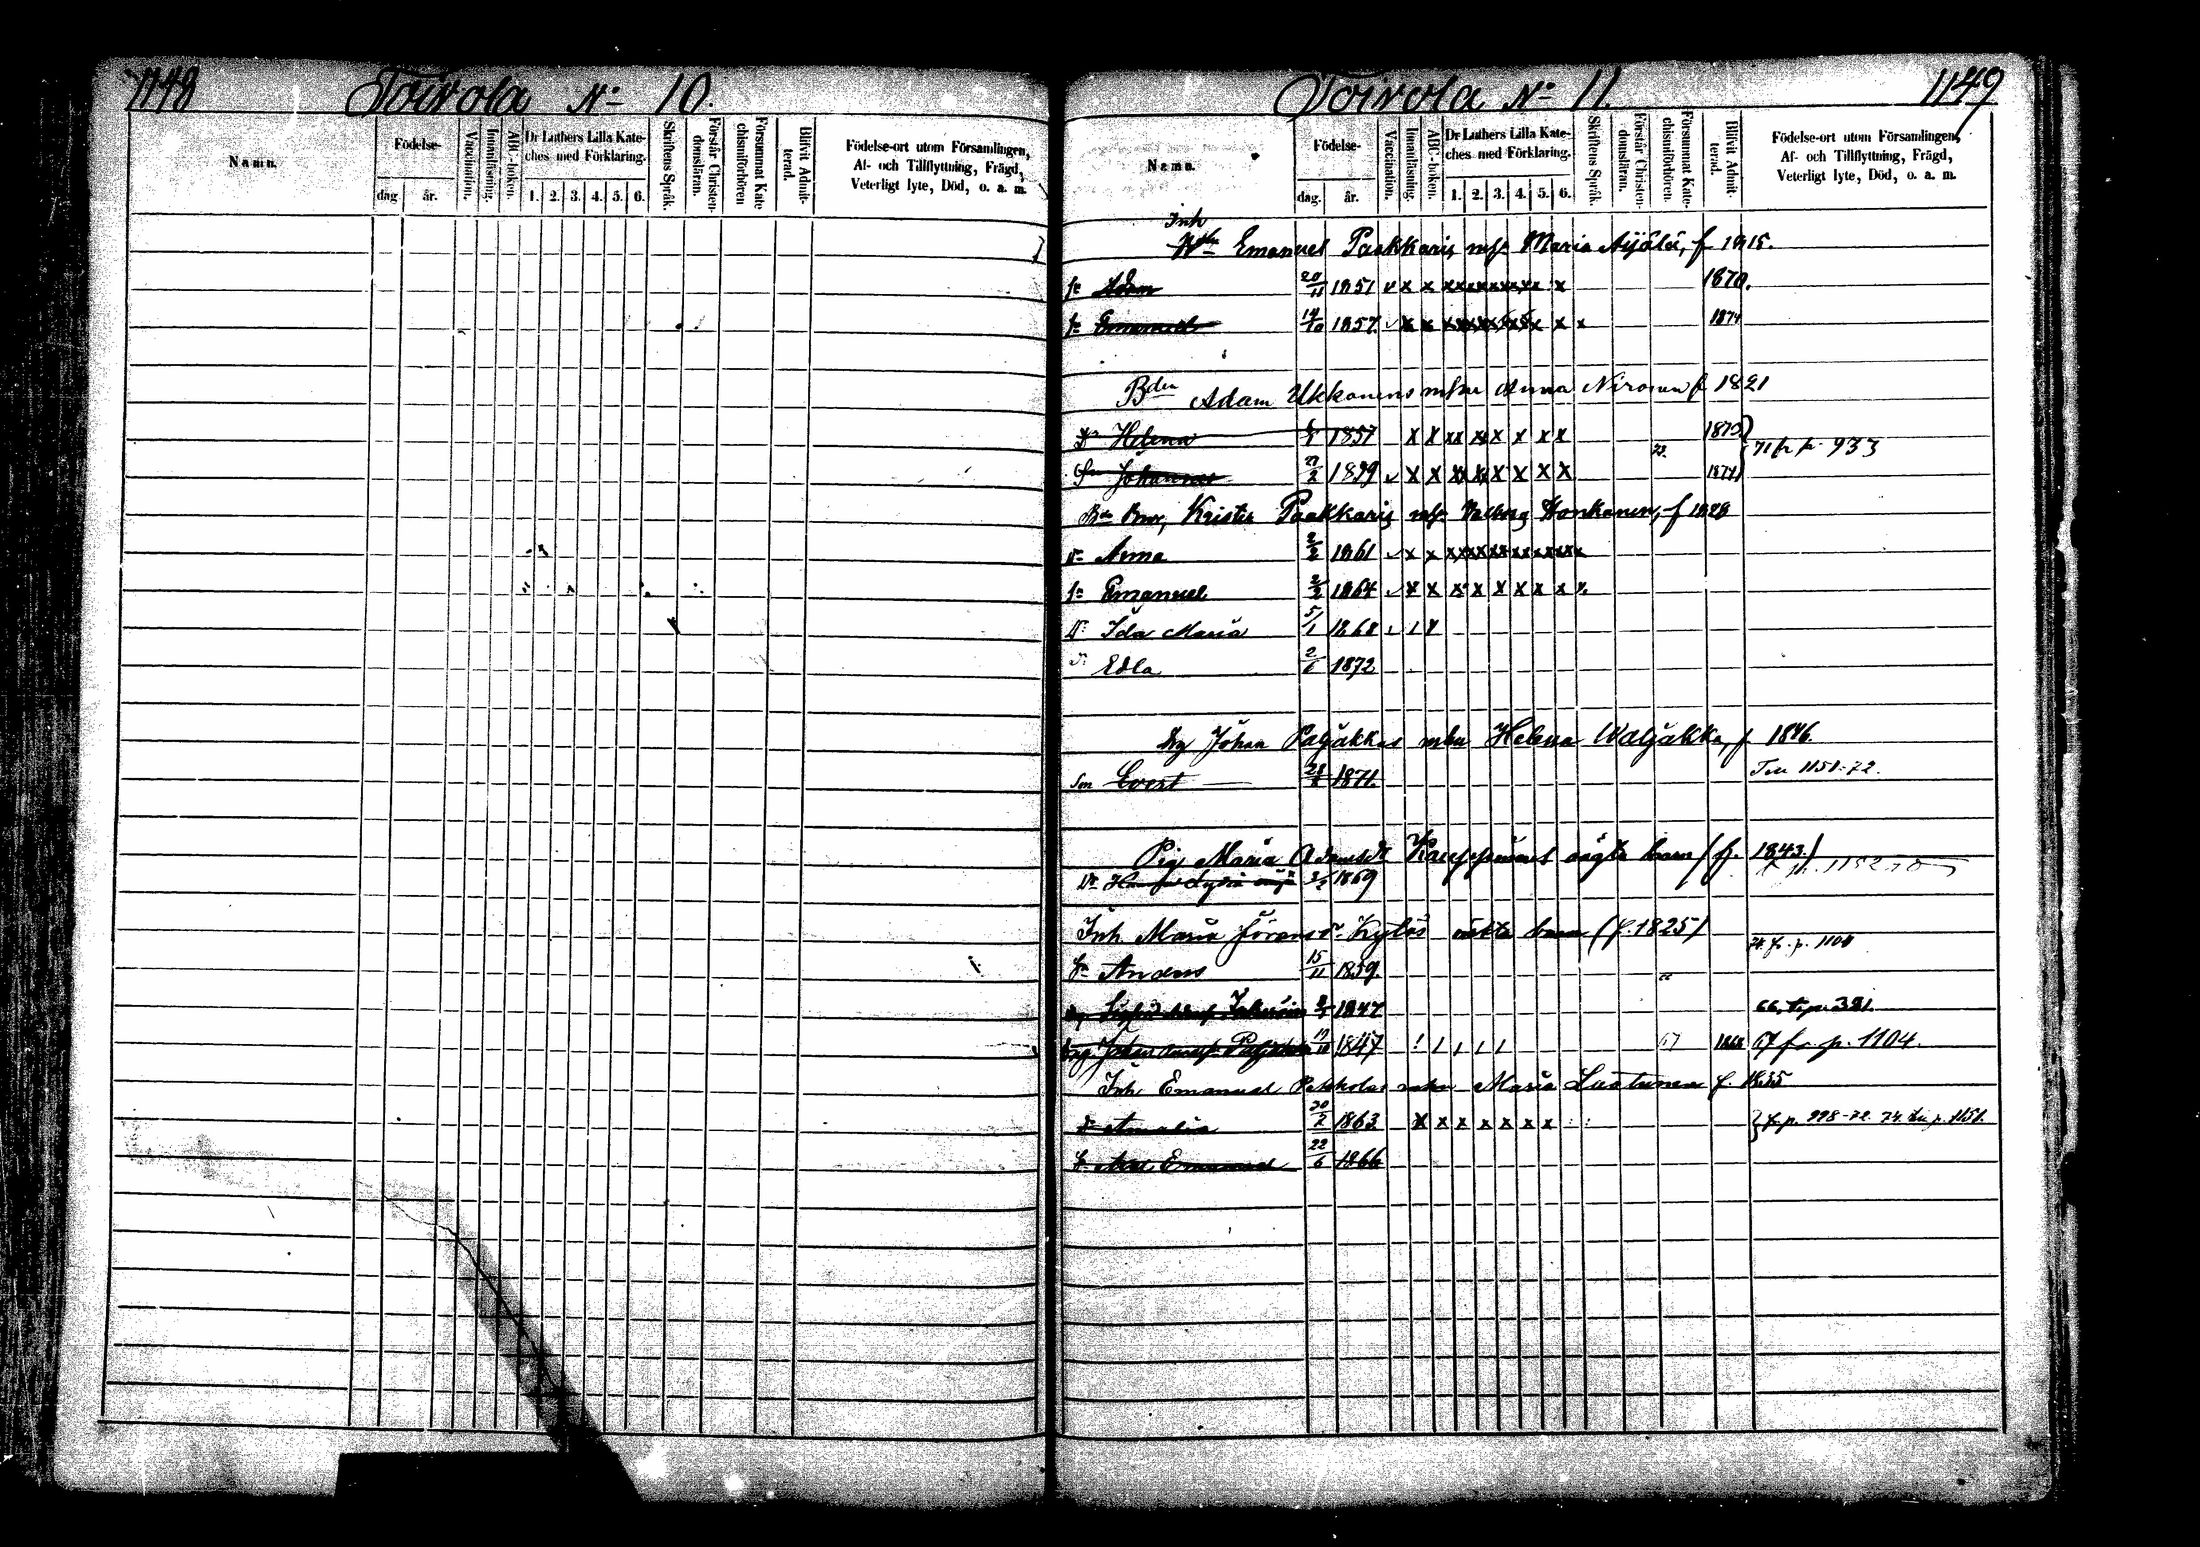 1148
Toivola No 10.
Namn.
Födelse-
dag
år.
Vaccination.
Innanläsning.
ABC-boken.
Dr Luthers Lilla Kate-
ches med Förklaring.
1. 2. 3. 4. 5. 6.
Skriftens Språk.
Förstår Christen-
domsläran.
Försummat Kate
chismiförhören
Blifvit Admit-
terad.
Födelse-ort utom Församlingen,
Af- och Tillflyttning, Frägd,
Veterligt lyte, Död, o. a. m.
Toivola No 11.
1149
Namn.
Födelse-
dag.
år.
Vaccination.
Innanläsning.
ABC-boken.
Dr Luthers Lilla Kate-
ches med Förklaring.
1. 2. 3. 4. 5. 6.
Skriftens Språk.
Förstår Christen-
domsläran.
Försummat Kate-
chismiförhören.
Blifvit Admit-
terad.
Födelse-ort utom Församlingen,
Af- och Tillflyttning, Frägd,
Veterligt lyte, Död, o. a. m.
Inh
Emanuel Paakkaris Maria Äijälä, f 1815.
Sn Adam 20/11 1851 v x x x x x x x x x 1870.
Sn Emanuel 14/10 1857 x x x x x x x x x 1874
Bden Adam Ukkonens Anna Nironen f 1821
Dr Helena 1857 x x x x x x x x 1873
71 fr p. 933
Sn Johannes 27/2 1859 x x x x x x x x 1874
Krister Paakkaris Honkanen, f 1828
Dr Anna 2/2 1861 x x x x x x x x x
Sn Emanuel 2/2 1864 x x x x x x x x
Dr Ida Maria 5/1 1868
Dr Edla 2/6 1872
Johan Paljakkas Helena Waljakka, f 1846.
Son Evert 28/8 1871.
Till 1151-72.
Pig Maria Adamsdr oägta barn (f. 1843)
Dr Lydia 1869
Inh Maria Jöransdr Kylös oäkta barn (f. 1825)
74 fr. p. 1104
Sn Anders 15/11 1859
1847
66, t. p. 381.
Johan 1847 67 1868 67 fr p. 1104.
Inh Emanuel Maria Laatunen f. 1835
Dr Amalia 20/2 1863 x x x x x x x
fr p. 998-72 74 till p. 1151.
Sn Emanuel 22/6 1866